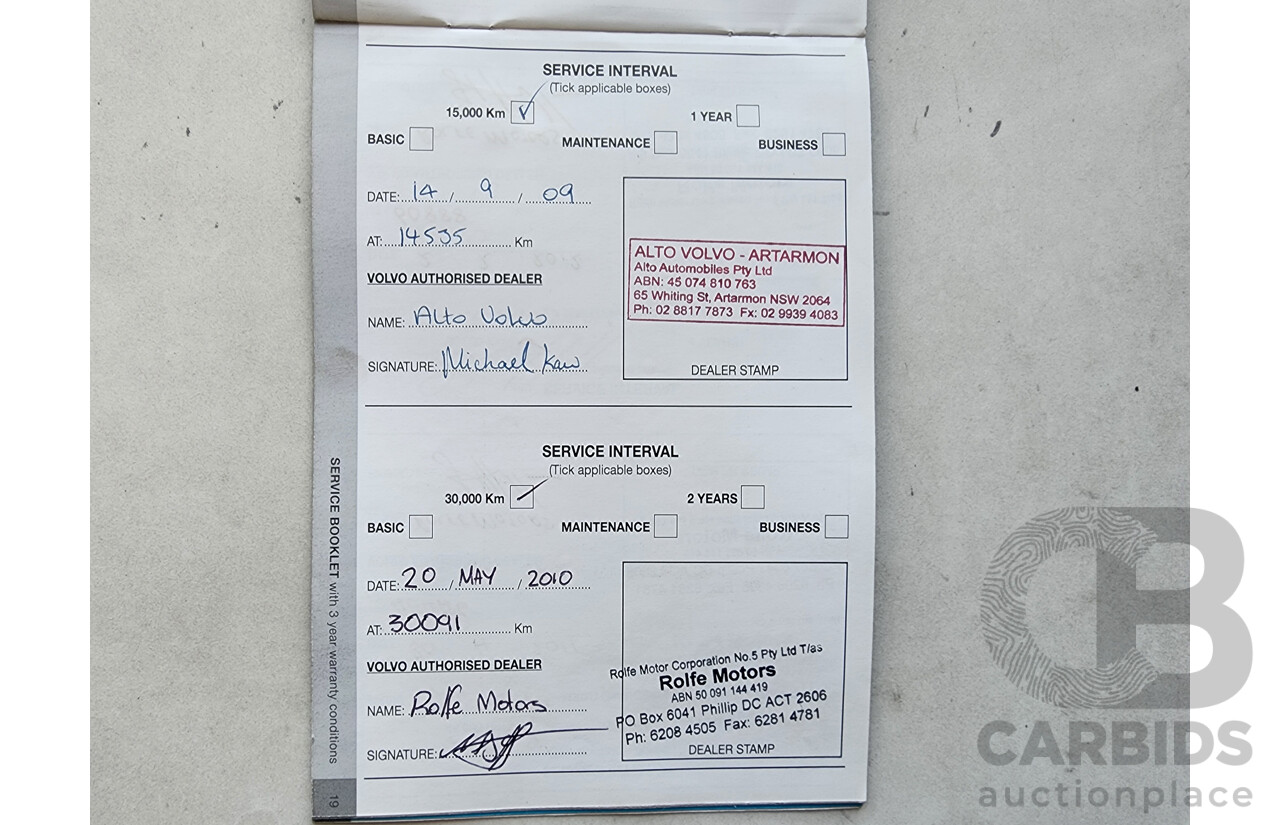 SERVICE INTERVAL
(Tick applicable boxes)
15,000 Km 1 YEAR
BASIC MAINTENANCE BUSINESS
DATE: 14 / 9 / 09
AT: 14535 Km
VOLVO AUTHORISED DEALER
NAME: Alto Volvo
SIGNATURE: Michael Kaw
ALTO VOLVO - ARTARMON
Alto Automobiles Pty Ltd
ABN: 45 074 810 763
65 Whiting St, Artarmon NSW 2064
Ph: 02 8817 7873 Fx: 02 9939 4083
DEALER STAMP
SERVICE INTERVAL
(Tick applicable boxes)
30,000 Km 2 YEARS
BASIC MAINTENANCE BUSINESS
DATE: 20 / MAY / 2010
AT: 30091 Km
VOLVO AUTHORISED DEALER
NAME: Rolfe Motors
SIGNATURE:
Rolfe Motor Corporation No.5 Pty Ltd T/as
Rolfe Motors
ABN 50 091 144 419
PO Box 6041 Phillip DC ACT 2606
Ph: 6208 4505 Fax: 6281 4781
DEALER STAMP
SERVICE BOOKLET with 3 year warranty conditions
19
CB
CARBIDS
auctionplace